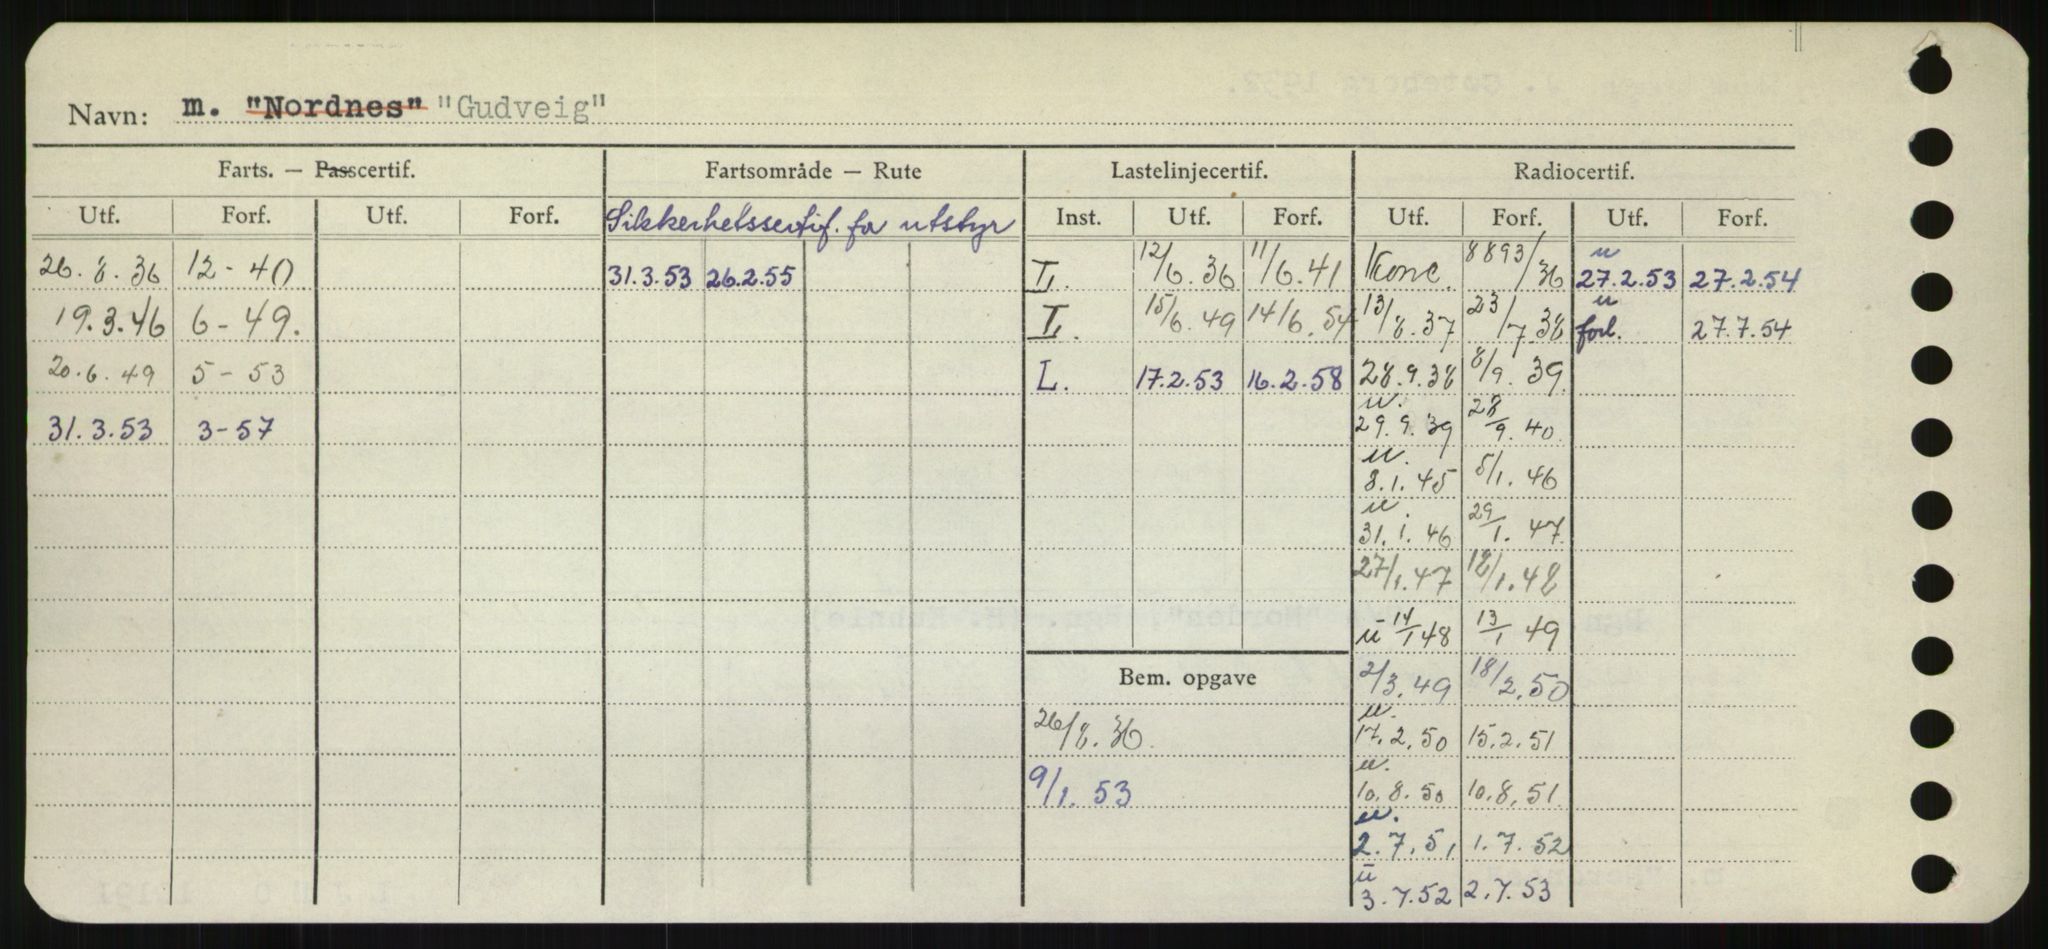 Navn: m. "Nordnes" "Gudveig"
Farts. — Passcertif. Fartsområde — Rute Lastelinjecertif. Radiocertif.
Utf. Forf. Utf. Forf. Sikkerhetssertif. for utstyr Inst. Utf. Forf. Utf. Forf. Utf. Forf.
26.8.36 12-40 31.3.53 26.2.55 L. 12/6.36 11/6.41 Konc. 8893/36 u 27.2.53 27.2.54
19.3.46 6-49. L. 15/6.49 14/6.54 13/8.37 23/7.38 u forl. 27.7.54
20.6.49 5-53 L. 17.2.53 16.2.58 28.9.38 8/9.39
31.3.53 3-57 u. 29.9.39 28/9.40
u. 8.1.45 5/1.46
u. 31.1.46 29/1.47
27/1.47 18/1.48
u 14/1 48 13/1 49
Bem. opgave 2/3.49 18/2.50
26/8.36. u. 17.2.50 15.2.51
9/1.53 u. 10.8.50 10.8.51
u. 2.7.51 1.7.52
u 3.7.52 2.7.53